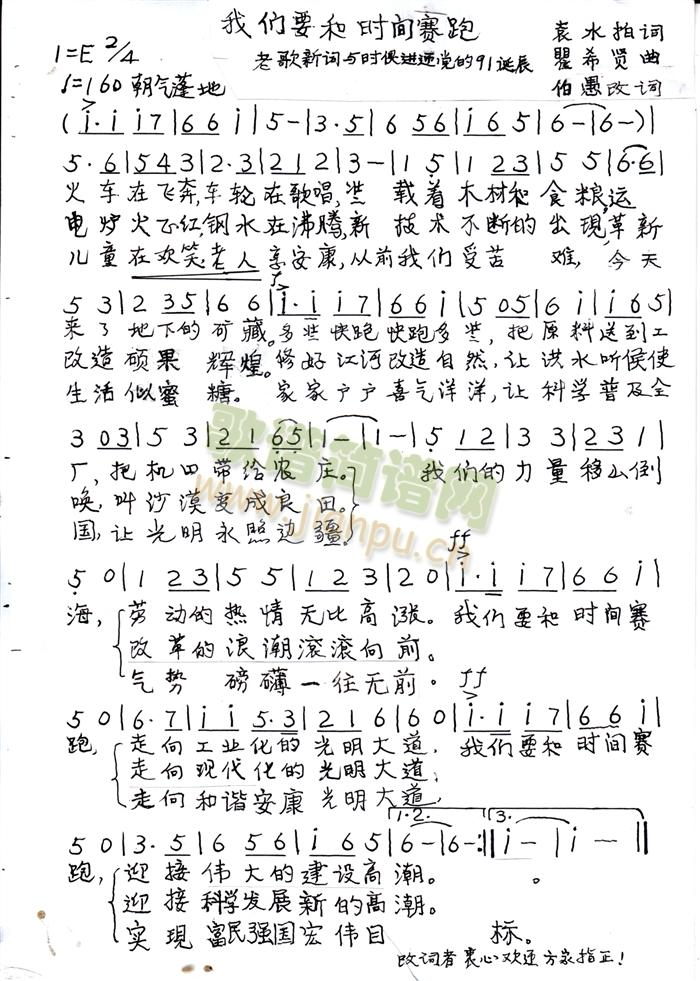 我们要和时间赛跑
袁水拍词
1=E 2/4
老歌新词与时俱进迎党的91诞辰
瞿希贤曲
♩=160 朝气蓬地
伯愚改词
(i·i i7|66 i|5-|3·5|6 56|i 65|6-|6-)|
5·6|543|2·3|212|3-|1 5|1 23|5 5|6·6|
火车在飞奔,车轮在歌唱,装 载着木材和食粮,运
电炉火正红,钢水在沸腾,新 技术不断的出现,革新
儿童在欢笑,老人享安康,从前我们受苦 难,今天
f
5 3|2 35|6 6|i·i i7|66 i|5 05|6 i|i 65|
来了地下的矿藏。多装快跑快跑多装,把原料送到工
改造硕果 辉煌。修好江河改造自然,让洪水听候使
生活似蜜 糖。家家户户喜气洋洋,让科学普及全
3 03|5 3|21 65|1-|1-|5 12|3 3|231|
厂,把机四带给农庄。 我们的力量移山倒
唤,叫沙漠变成良田。
国,让光明永照边疆。
歌谱简谱网
www.jianpu.cn
ff
5 0|1 23|5 5|123|20|i·i i7|66 i|
海,劳动的热情无比高涨。我们要和时间赛
改革的浪潮滚滚向前。
气势 磅礴一往无前。
ff
5 0|6·7|i i 5·3|216|60|i·i i7|66 i|
跑,走向工业化的光明大道,我们要和时间赛
走向现代化的光明大道,
走向和谐安康光明大道,
1.2. 3.
5 0|3·5|6 56|i 65|6-|6-:‖i-|i-‖
跑,迎接伟大的建设高潮。 。
迎接科学发展新的高潮。
实现富民强国宏伟目 标。
改词者衷心欢迎方家指正!